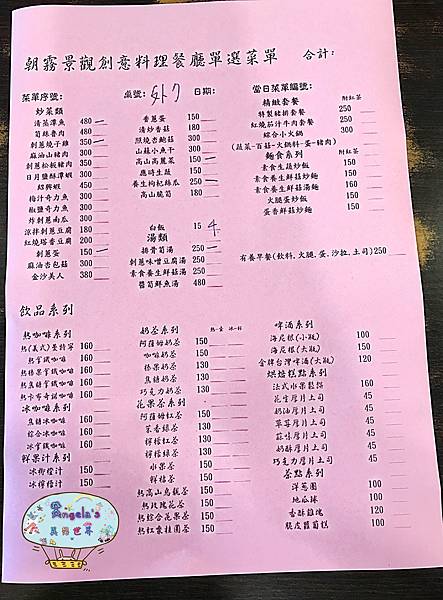 朝霧景觀創意料理餐廳單選菜單 合計:
菜單序號: 桌號: 外7 日期:
當日菜單編號:
炒菜類
清蒸潭魚 480
筍絲魯肉 480
刺蔥燒子雞 350
麻油山豬肉 350
刺蔥松板豬肉 350
日月鹽酥潭蝦 300
紹興蝦 350
梅汁奇力魚 300
椒鹽奇力魚 300
炸刺蔥南瓜 300
涼拌刺蔥豆腐 180
紅燒塔香豆腐 200
刺蔥蛋 150
麻油杏包菇 300
金沙美人 380
香蔥蛋 150
清炒香菇 180
照燒杏鮑菇 300
山蘇小魚干 300
高山高麗菜 150
應時生蔬 150
養生枸杞絲瓜 250
高山脆筍 180
白飯 15 4
湯類
排骨筍湯 250
刺蔥味噌豆腐湯 250
素食養生鮮菇湯 250
醬筍鮮魚湯 480
精緻套餐 附紅茶
特製豬排套餐 250
紅燒茄汁牛肉套餐 250
綜合小火鍋 250
(蔬菜-百菇-火鍋料-蛋-豬肉)
麵食系列 附紅茶
素食生蔬炒飯 150
素食養生鮮菇炒麵 150
素食養生鮮菇湯麵 160
火腿蛋炒飯 150
蛋香鮮菇炒麵 150
有養早餐(飲料,火腿,蛋,沙拉,土司)250
飲品系列
熱咖啡系列
熱(美式)曼特寧 160
熱拿鐵咖啡 160
熱榛果拿鐵咖啡 160
熱焦糖拿鐵咖啡 160
熱卡布奇諾咖啡 160
冰咖啡系列
焦糖冰咖啡 160
綜合冰咖啡 160
冰拿鐵咖啡 160
鮮果汁系列
冰柳橙汁 150
冰檸檬汁 150
Angela's
奶茶系列
阿薩姆奶茶 150
咖啡奶茶 150
榛果奶茶 150
焦糖奶茶 150
巧克力奶茶 150
花果茶系列
阿薩姆紅茶 130
茉香綠茶 130
檸檬紅茶 130
檸檬綠茶 130
水果茶 150
鮮桔茶 150
熱高山烏龍茶 150
熱玫瑰花茶 150
熱綜合花果茶 150
熱紅棗桂圓茶 150
啤酒系列
海尼根(小瓶) 100
海尼根(大瓶) 150
金牌台灣啤酒(大瓶) 120
烘焙糕點系列
法式水果鬆餅 160
花生厚片土司 45
奶油厚片土司 45
草莓厚片土司 45
蒜味厚片土司 45
奶酥厚片土司 45
巧克力厚片土司 45
茶點系列
洋蔥圈 100
地瓜球 100
香酥雞塊 100
脆皮蘿蔔糕 100